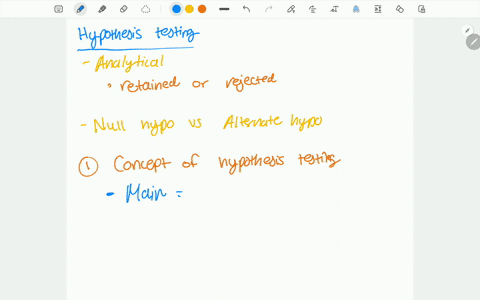 Hypothesis testing
- Analytical
• retained or rejected
- Null hypo vs Alternate hypo
① Concept of hypothesis testing
• Main =